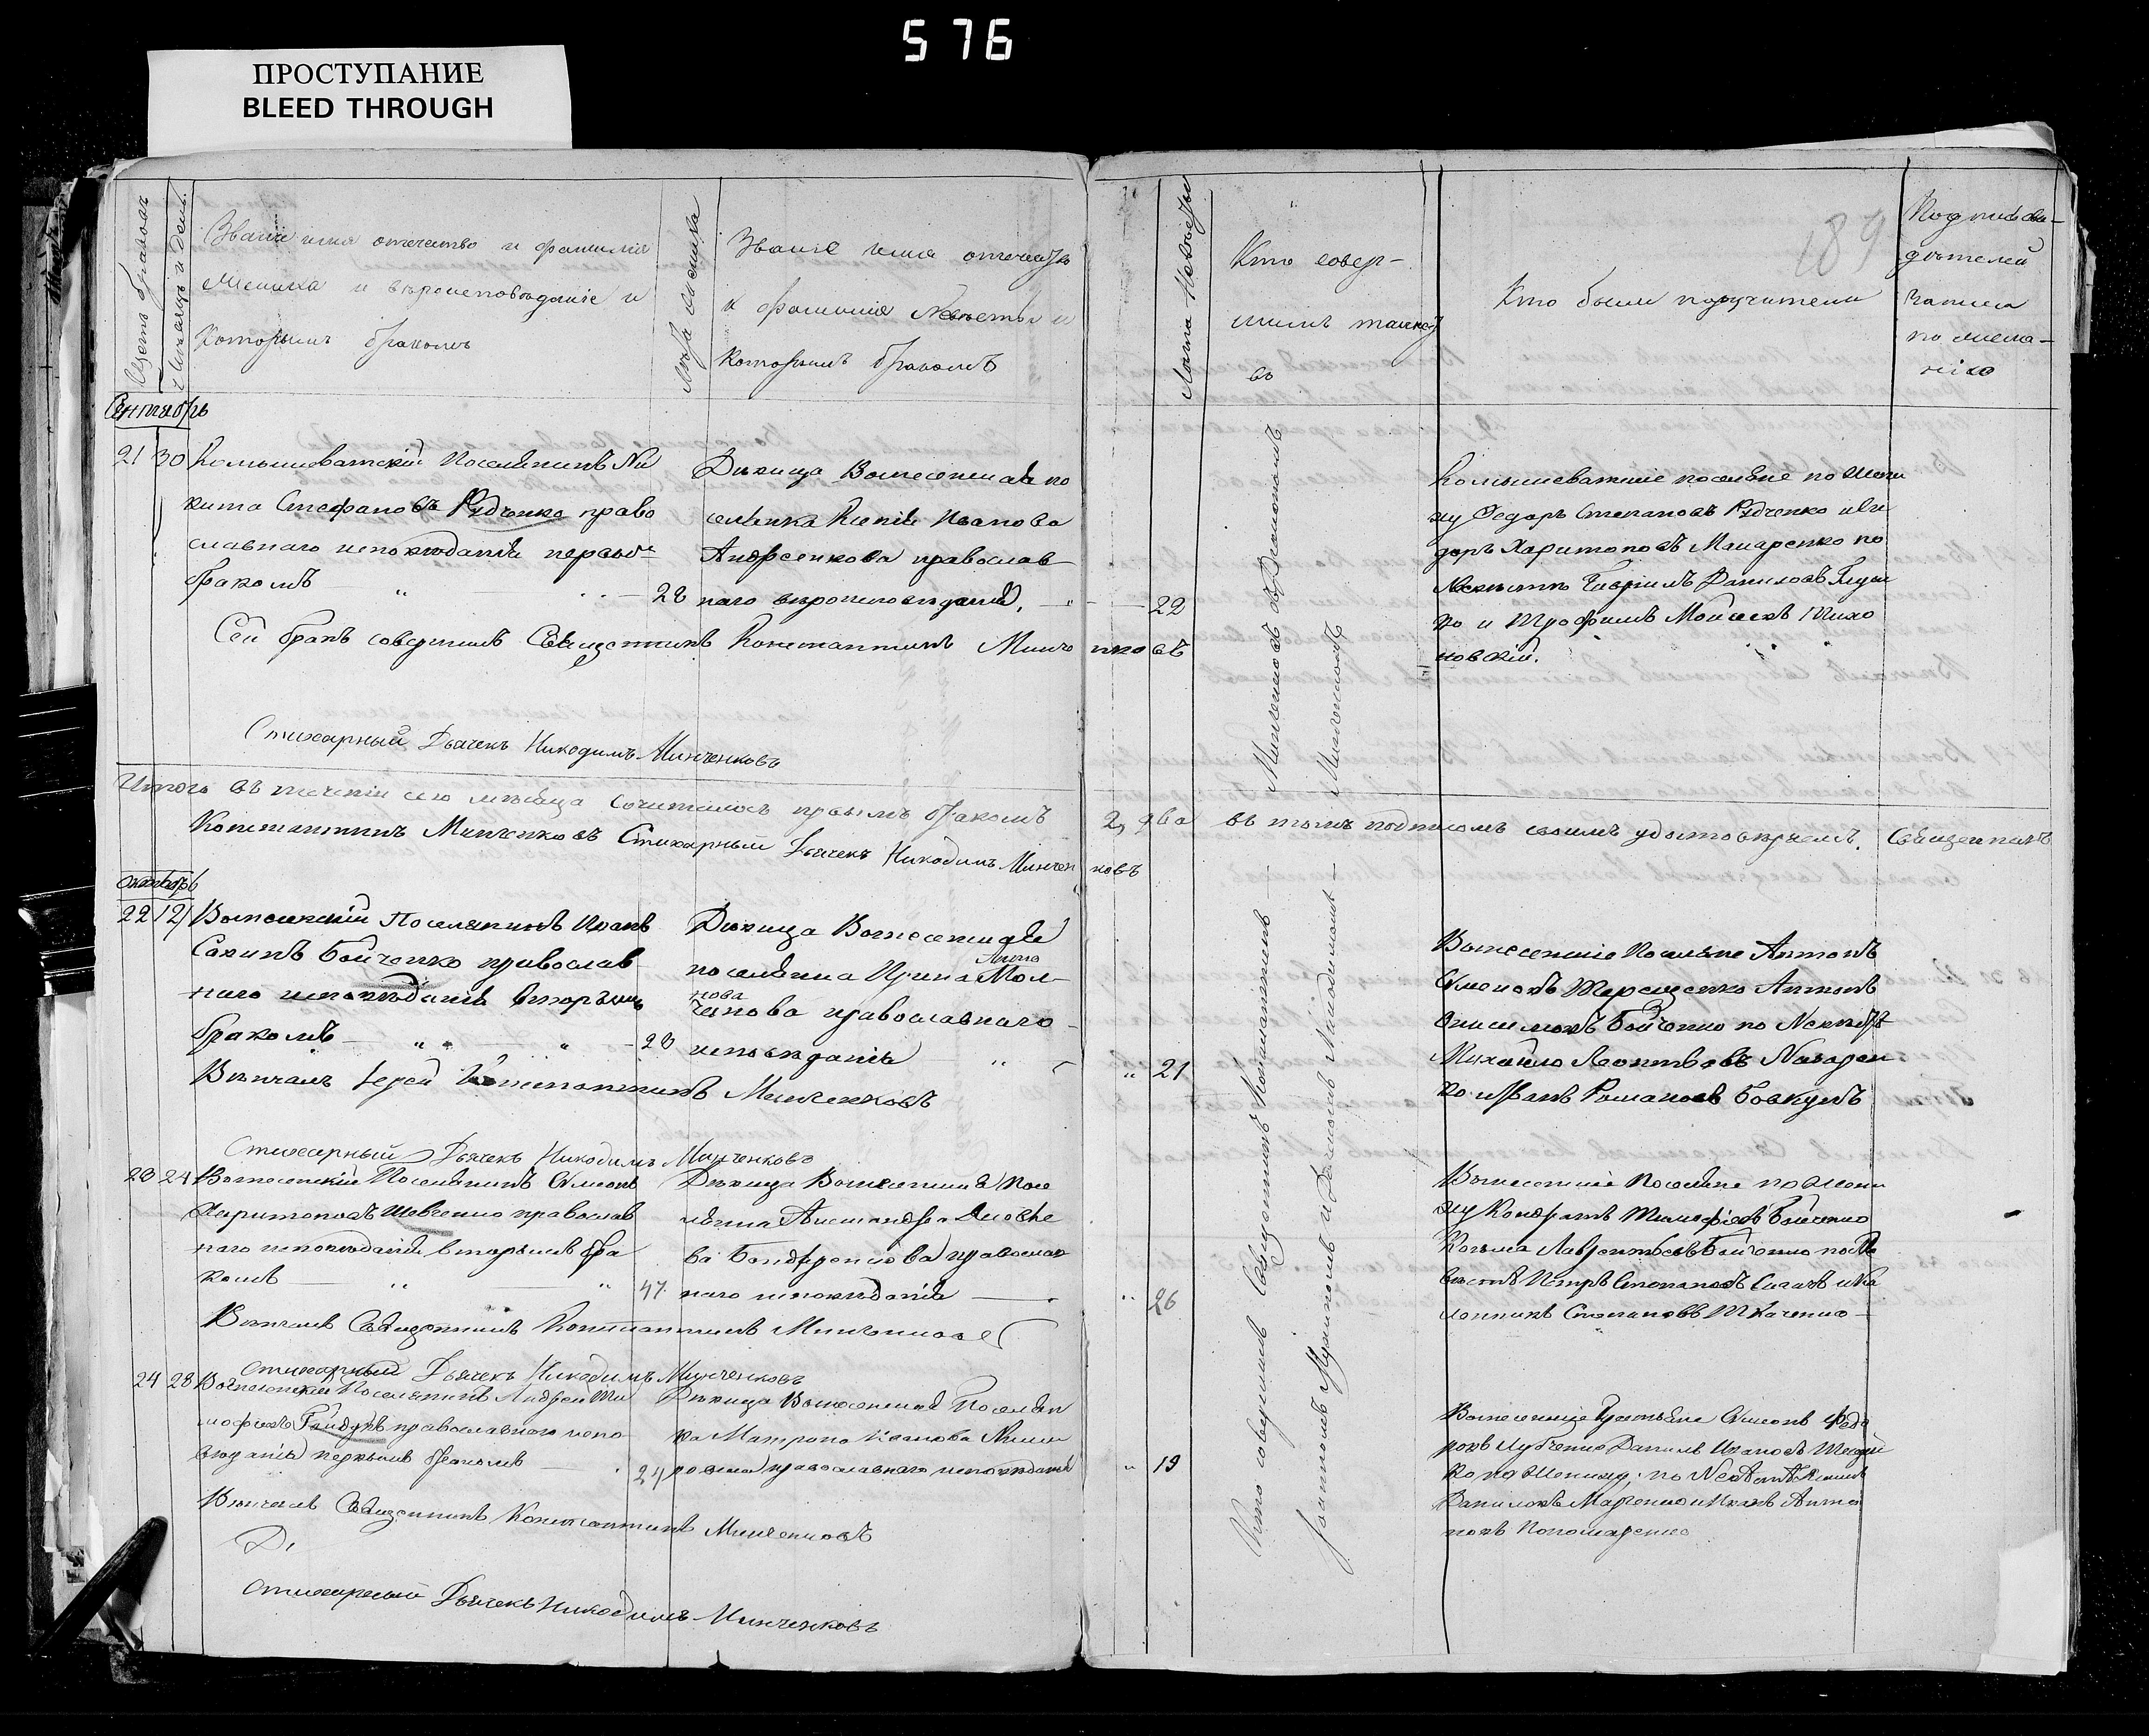 576
ПРОСТУПАНИЕ
BLEED THROUGH
Щетъ браковъ
Мѣсяцъ и день
Званіе имя отечество и фамилія
Жениха и вѣроисповѣданіе и
которымъ бракомъ
Лѣта жениха
Званіе имя отечество
и фамилія Невѣсты и
которымъ бракомъ
Лѣта Невѣсты
Кто совер-
шилъ таинст
въ
Кто были поручители
189
Подпись сви-
дѣтелей
записи
по жела-
нію
Сентябрь
21 30 Комышеватскій Поселянинъ Ни
кита Стефановъ Рѣдченко право
славнаго исповѣданія первымъ
бракомъ 28
Дѣвица Вознесенская по
селянка Ксенія Иванова
Андреенкова православ
наго вѣроисповѣданія 22
Комышеватскіе поселяне по Жени
ху Федоръ Степановъ Рѣдченко и
доръ Харитоновъ Макаренко по
Невѣсте Гавріилъ Даниловъ
ко и Трофимъ Тихо
новскій.
Сей бракъ совершилъ Священникъ Константинъ Минченковъ
Стихарный Дьячекъ Никодимъ Минченковъ
Итого въ теченіи сего мѣсяца сочиталось правымъ бракомъ 2, два въ томъ подписомъ своимъ удостовѣряемъ. Священникъ
Константинъ Минченковъ Стихарный Дьячекъ Никодимъ Минченковъ
Октябрь
22 12 Вознесенскій Поселянинъ Иванъ
Савинъ Бойченко православ
наго исповѣданія вторымъ
бракомъ 23
Дѣвица Вознесенская
поселянка Ирина Мол-
чанова православнаго
исповѣданія 21
Вознесенскіе Поселяне Антонъ
Семеновъ Терещенко Антонъ
Онисимовъ Бойченко по Невѣсте
Михайло Леонтьевъ Назарен
ко и Иванъ Романовъ Бовкунъ
Вѣнчалъ Іерей Константинъ Минченковъ
Стихарный Дьячекъ Никодимъ Минченковъ
23 24 Вознесенскій Поселянинъ Семенъ
Харитоновъ Шевченко православ
наго исповѣданія вторымъ бра
комъ 47
Дѣвица Вознесенская Посе
лянка Александра
ва Бондаренкова православ
наго исповѣданія 26
Вознесенскіе Поселяне по Жени
ху Кондратъ Тимофѣевъ Бойченко
Козьма Лаврентьевъ Бойченко по Не
вѣсте Петръ Степановъ
Степановъ Ткаченко
Вѣнчалъ Священникъ Константинъ Минченковъ
Стихарный Дьячекъ Никодимъ Минченковъ
24 28 Вознесенскій Поселянинъ Андрей Ти
мофѣевъ Гайдукъ православнаго испо
вѣданія первымъ бракомъ 24
Дѣвица Вознесенская Поселян
ка Матрона Иванова
православнаго исповѣданія 19
Вознесенскіе Семенъ Федо
ровъ Данилъ Ивановъ
ко по Жениху, по Невѣсте
Даниловъ Марченко и Иванъ Анто
новъ Пономаренко
Вѣнчалъ Священникъ Константинъ Минченковъ
Стихарный Дьячекъ Никодимъ Минченковъ
Кто совершилъ Священникъ Константинъ Минченковъ съ Дьякономъ
и Дьячкомъ Никодимомъ Минченковымъ